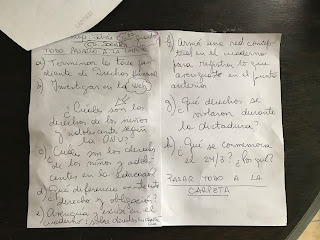 TODO
a) Terminar la tarea pen
diente de Derechos
b) Investigar en la web
¿Cuáles son los
derechos de los niños
y adolescente según
la ONU?
c) Cuáles son los derechos
de los niños y adoles
centes en la Educación?
d) Qué diferencia
derecho y obligación?
e)
f) Armá una red concep
tual en el cuaderno
para registrar lo que
averiguaste en el punto
anterior
g) Qué derechos se
violaron durante
la dictadura?
h) Qué se conmemora
el 24/3? ¿Por qué?
PASAR TODO A LA
CARPETA